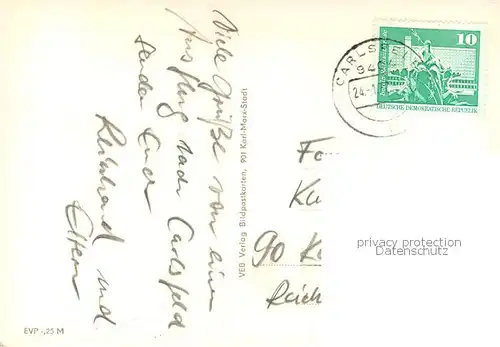 Viele Grüße von einem
Ausflug nach Carlsfeld
senden Euer
Reinhard und
Eltern
VEB Verlag Bildpostkarten, 901 Karl-Marx-Stadt
EVP -,25 M
CARLSFE
940
24.-
10
DEUTSCHE DEMOKRATISCHE REPUBLIK
Fa
Ka
90 K
Reich
privacy protection
Datenschutz